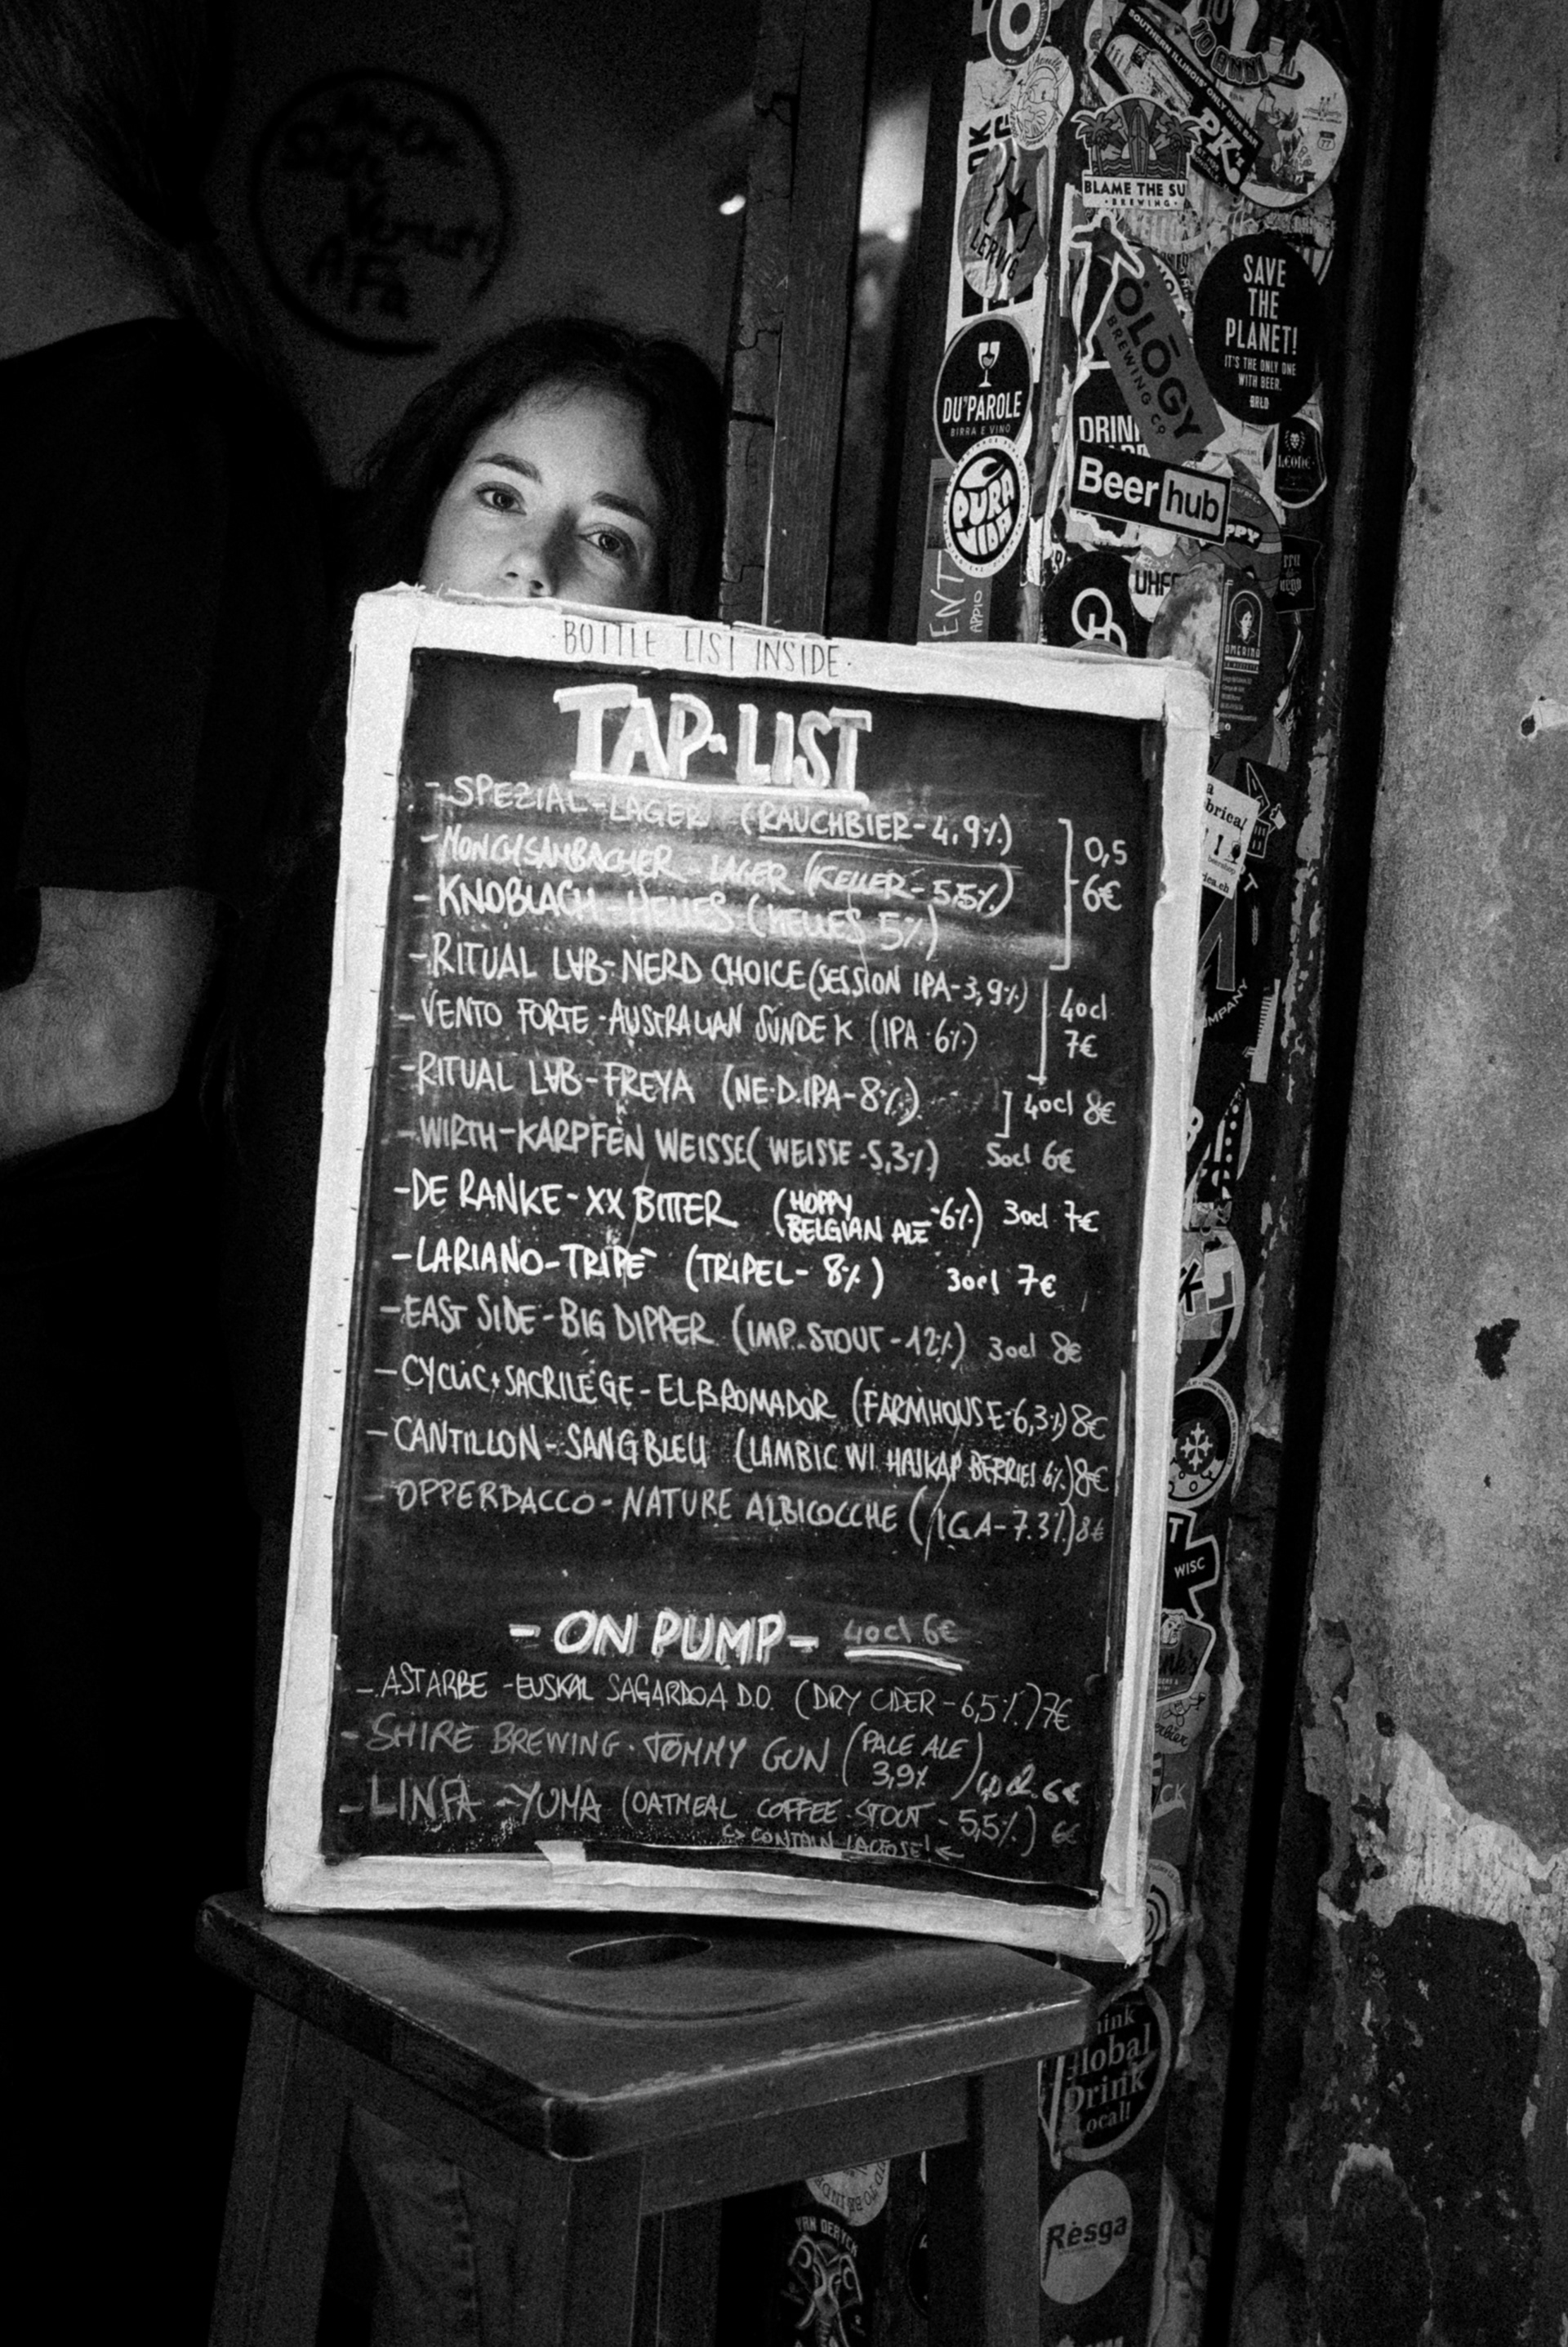 BOTTLE LIST INSIDE
TAP-LIST
- SPEZIAL-LAGER (RAUCHBIER-4,9%)
- MONCHSANBACHER - LAGER (KELLER-5,5%)
0,5
6€
- KNOBLACH-HELLES (HELLES 5%)
- RITUAL LAB-NERD CHOICE (SESSION IPA-3,9%)
- VENTO FORTE-AUSTRALIAN SUNDEK (IPA-6%)
40cl
7€
- RITUAL LAB-FREYA (NE.D.IPA-8%) 40cl 8€
- WIRTH-KARPFEN WEISSE (WEISSE-5,3%) 50cl 6€
- DE RANKE-XX BITTER (HOPPY BELGIAN ALE-6%) 30cl 7€
- LARIANO-TRIPÈ (TRIPEL-8%) 30cl 7€
- EAST SIDE-BIG DIPPER (IMP.STOUT-12%) 30cl 8€
- CYCLIC+SACRILÈGE-ELBROMADOR (FARMHOUSE-6,3%) 8€
- CANTILLON-SANG BLEU (LAMBIC W/ HASKAP BERRIES 6%) 8€
- OPPERBACCO-NATURE ALBICOCCHE (IGA-7.3%) 8€
- ON PUMP- 40cl 6€
- ASTARBE-EUSKAL SAGARDOA D.O. (DRY CIDER-6,5%) 7€
- SHIRE BREWING. TOMMY GUN (PALE ALE 3,9%) 6€
- LINFA-YUMA (OATMEAL COFFEE STOUT-5,5%) 6€
CONTAIN LACTOSE!
SOUTHERN ILLINOIS' ONLY DIVE BAR
PK's
BLAME THE SU
BREWING
LERVIG
SAVE
THE
PLANET!
IT'S THE ONLY ONE
WITH BEER.
BRLO
ŌLŌGY
BREWING CO
DU'PAROLE
BIRRA E VINO
DRIN
LEONE
Beer hub
PURA
VIDA
APPIO
WISC
Think
Global
Drink
Local!
Rèsga
VAN DERYCK